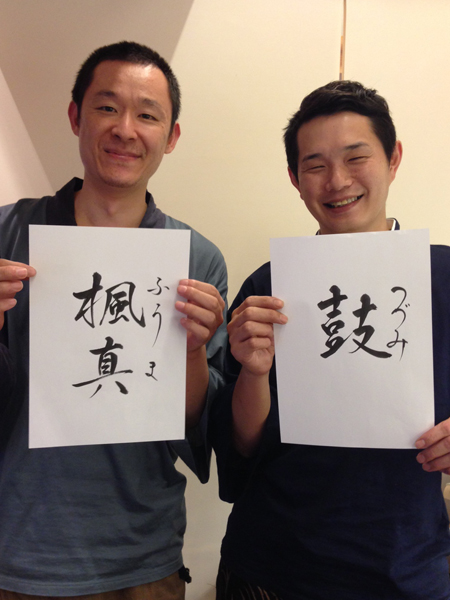 楓真
ふうま
鼓
つづみ